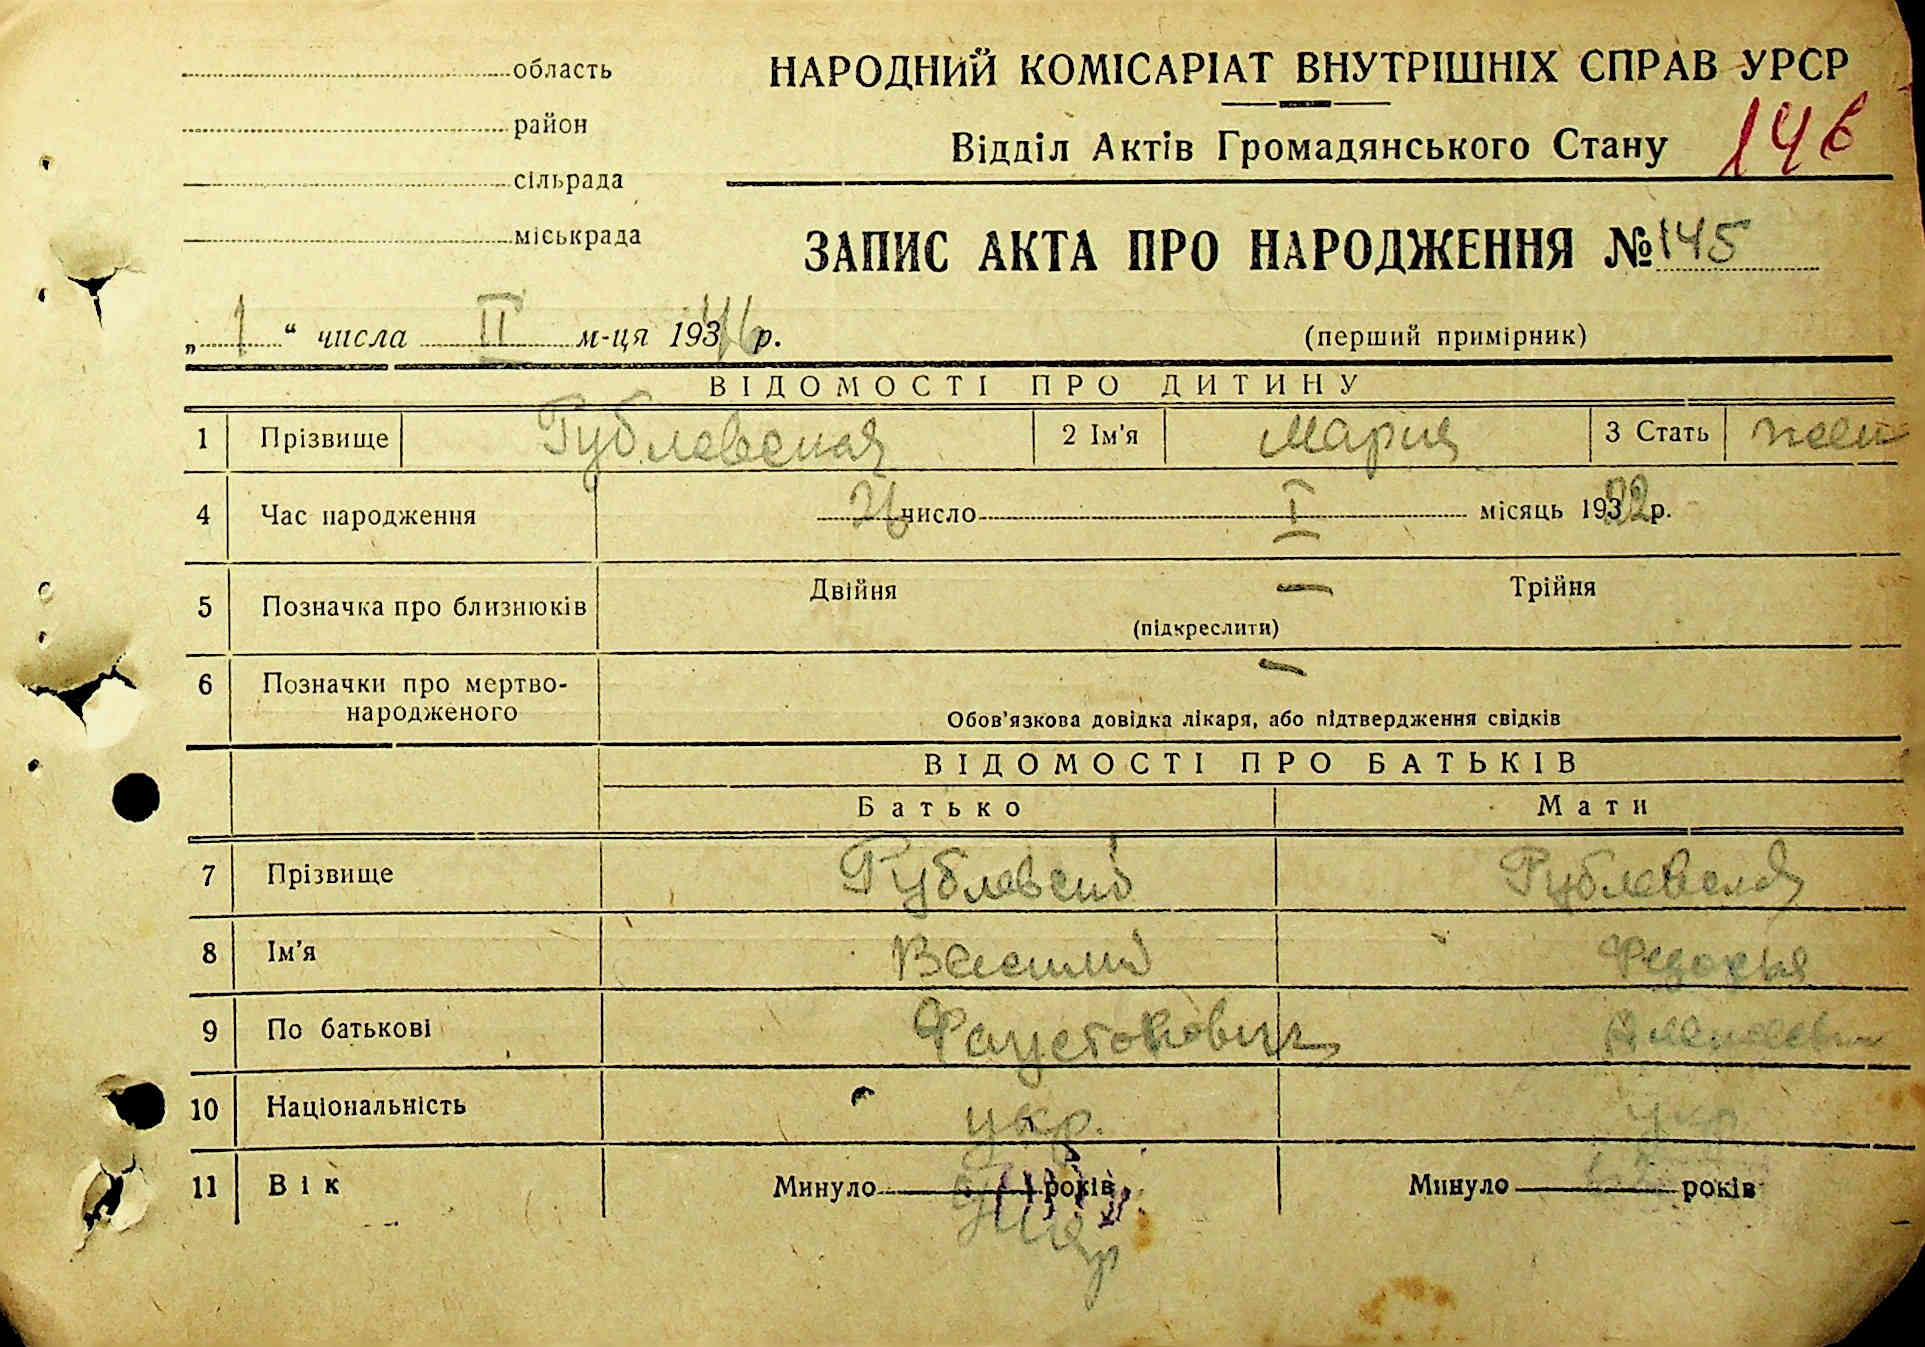 область
район
сільрада
міськрада
НАРОДНИЙ КОМІСАРІАТ ВНУТРІШНІХ СПРАВ УРСР
Відділ Актів Громадянського Стану
146
ЗАПИС АКТА ПРО НАРОДЖЕННЯ № 145
„ 1 “ числа II м-ця 193 46 р.
(перший примірник)
ВІДОМОСТІ ПРО ДИТИНУ
1 Прізвище Рублевская 2 Ім'я Мария 3 Стать жен
4 Час народження 26 число I місяць 193 22 р.
5 Позначка про близнюків Двійня — Трійня
(підкреслити)
6 Позначки про мертво-
народженого
—
Обов'язкова довідка лікаря, або підтвердження свідків
ВІДОМОСТІ ПРО БАТЬКІВ
Батько Мати
7 Прізвище Рублевский Рублевская
8 Ім'я Василий Федосья
9 По батькові Фаустович Алексеевн
10 Національність укр. укр
11 Вік Минуло років Минуло років
умер